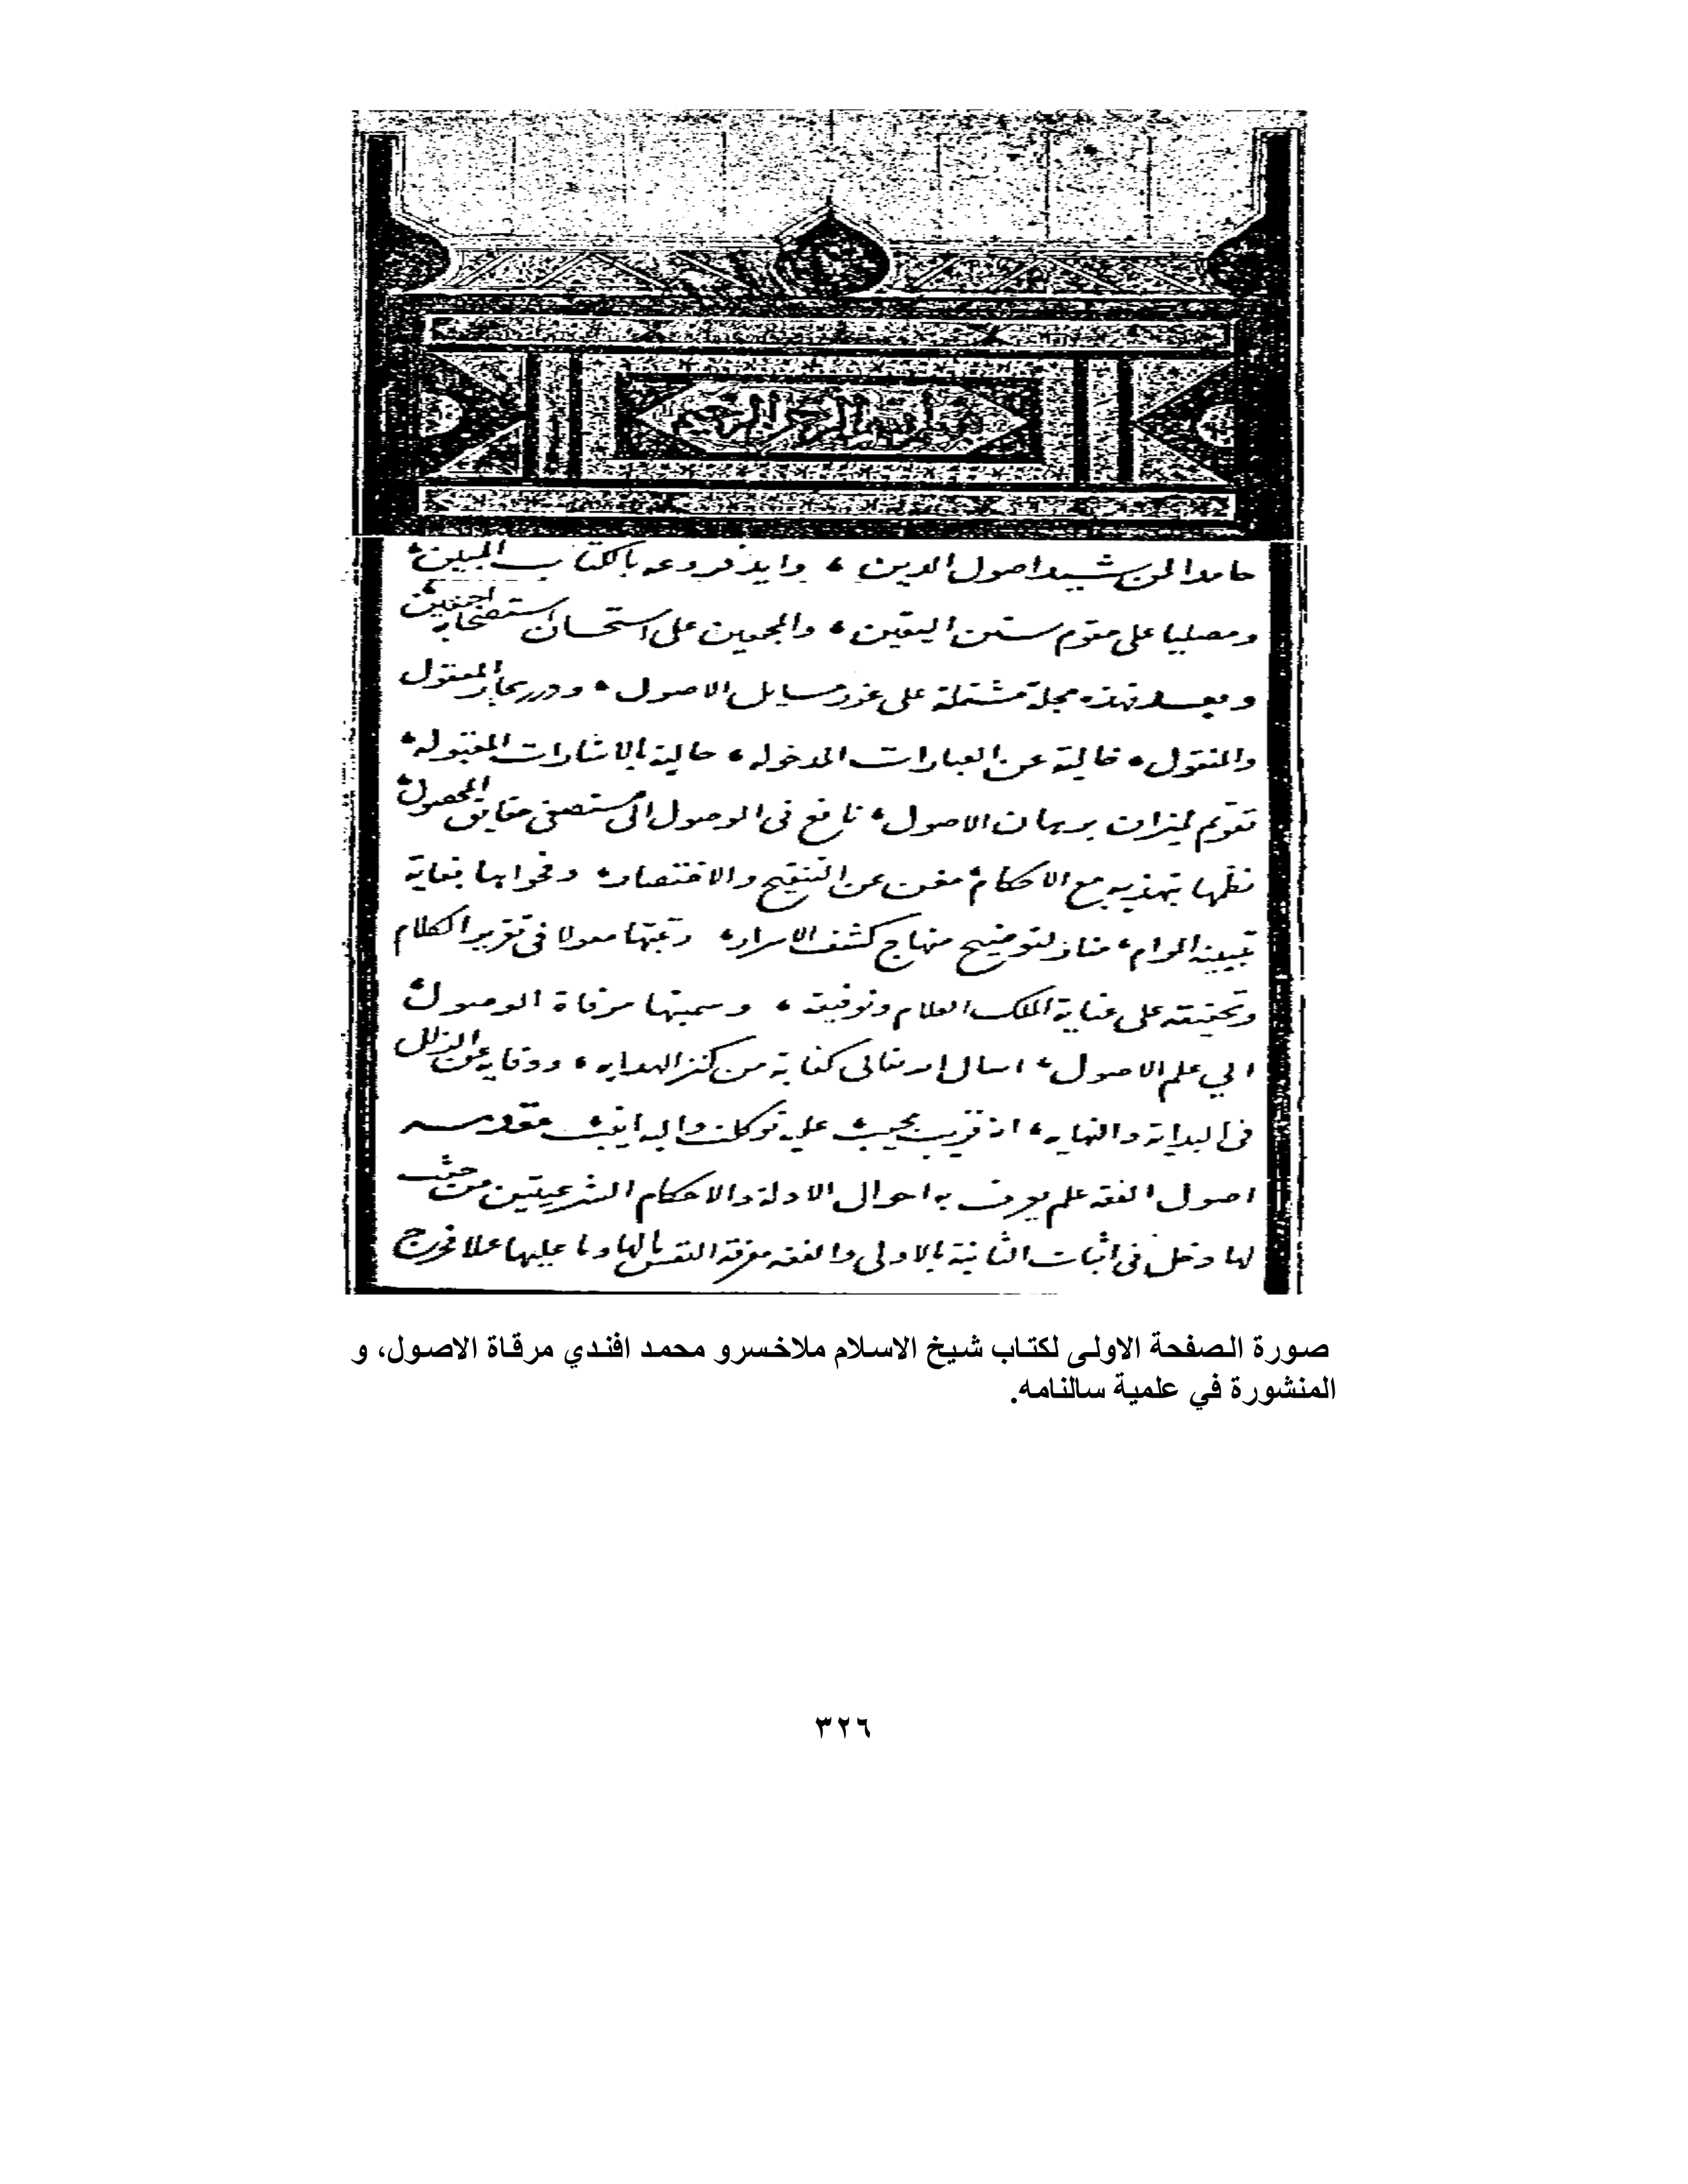 بسم الله الرحمن الرحيم
حامدا لمن شيد اصول الدين، وايد فروعه بالكتاب المبين،
ومصليا على مقوم سنن اليقين، والمجمعين على استحسان استصحابه اجمعين
وبعد فهذه مجلة مشتملة على غرر مسايل الاصول، ودرر بحار المعقول
والمنقول، خالية عن العبارات المدخولة، حالية بالاشارات المقبولة،
تقويم لميزان برهان الاصول، نافع فى الوصول الى مستصفى حقايق المحصول
نظمها بتهذيبه مع الاحكام، مغن عن التنقيح والاختصار، وفحوايها بغاية
تبيينه المرام، منار لتوضيح منهاج كشف الاسرار، رتبتها معولا فى تقرير الكلام
وتحقيقه على عناية الملك العلام وتوفيقه، وسميتها مرقاة الوصول
الي علم الاصول، اسال الله تعالى كفاية من كنز الهدايه، ووقاية عن الزلل
فى البداية والنهايه، انه قريب مجيب عليه توكلت واليه انيب مقدمه
اصول الفقه علم يعرف به احوال الادلة والاحكام الشرعيتين من حيث
لها دخل فى اثبات الثانية بالاولى والفقه معرفة النفس مالها وما عليها عملا فخرج
صورة الصفحة الاولى لكتاب شيخ الاسلام ملاخسرو محمد افندي مرقاة الاصول، و
المنشورة في علمية سالنامه.
٣٢٦